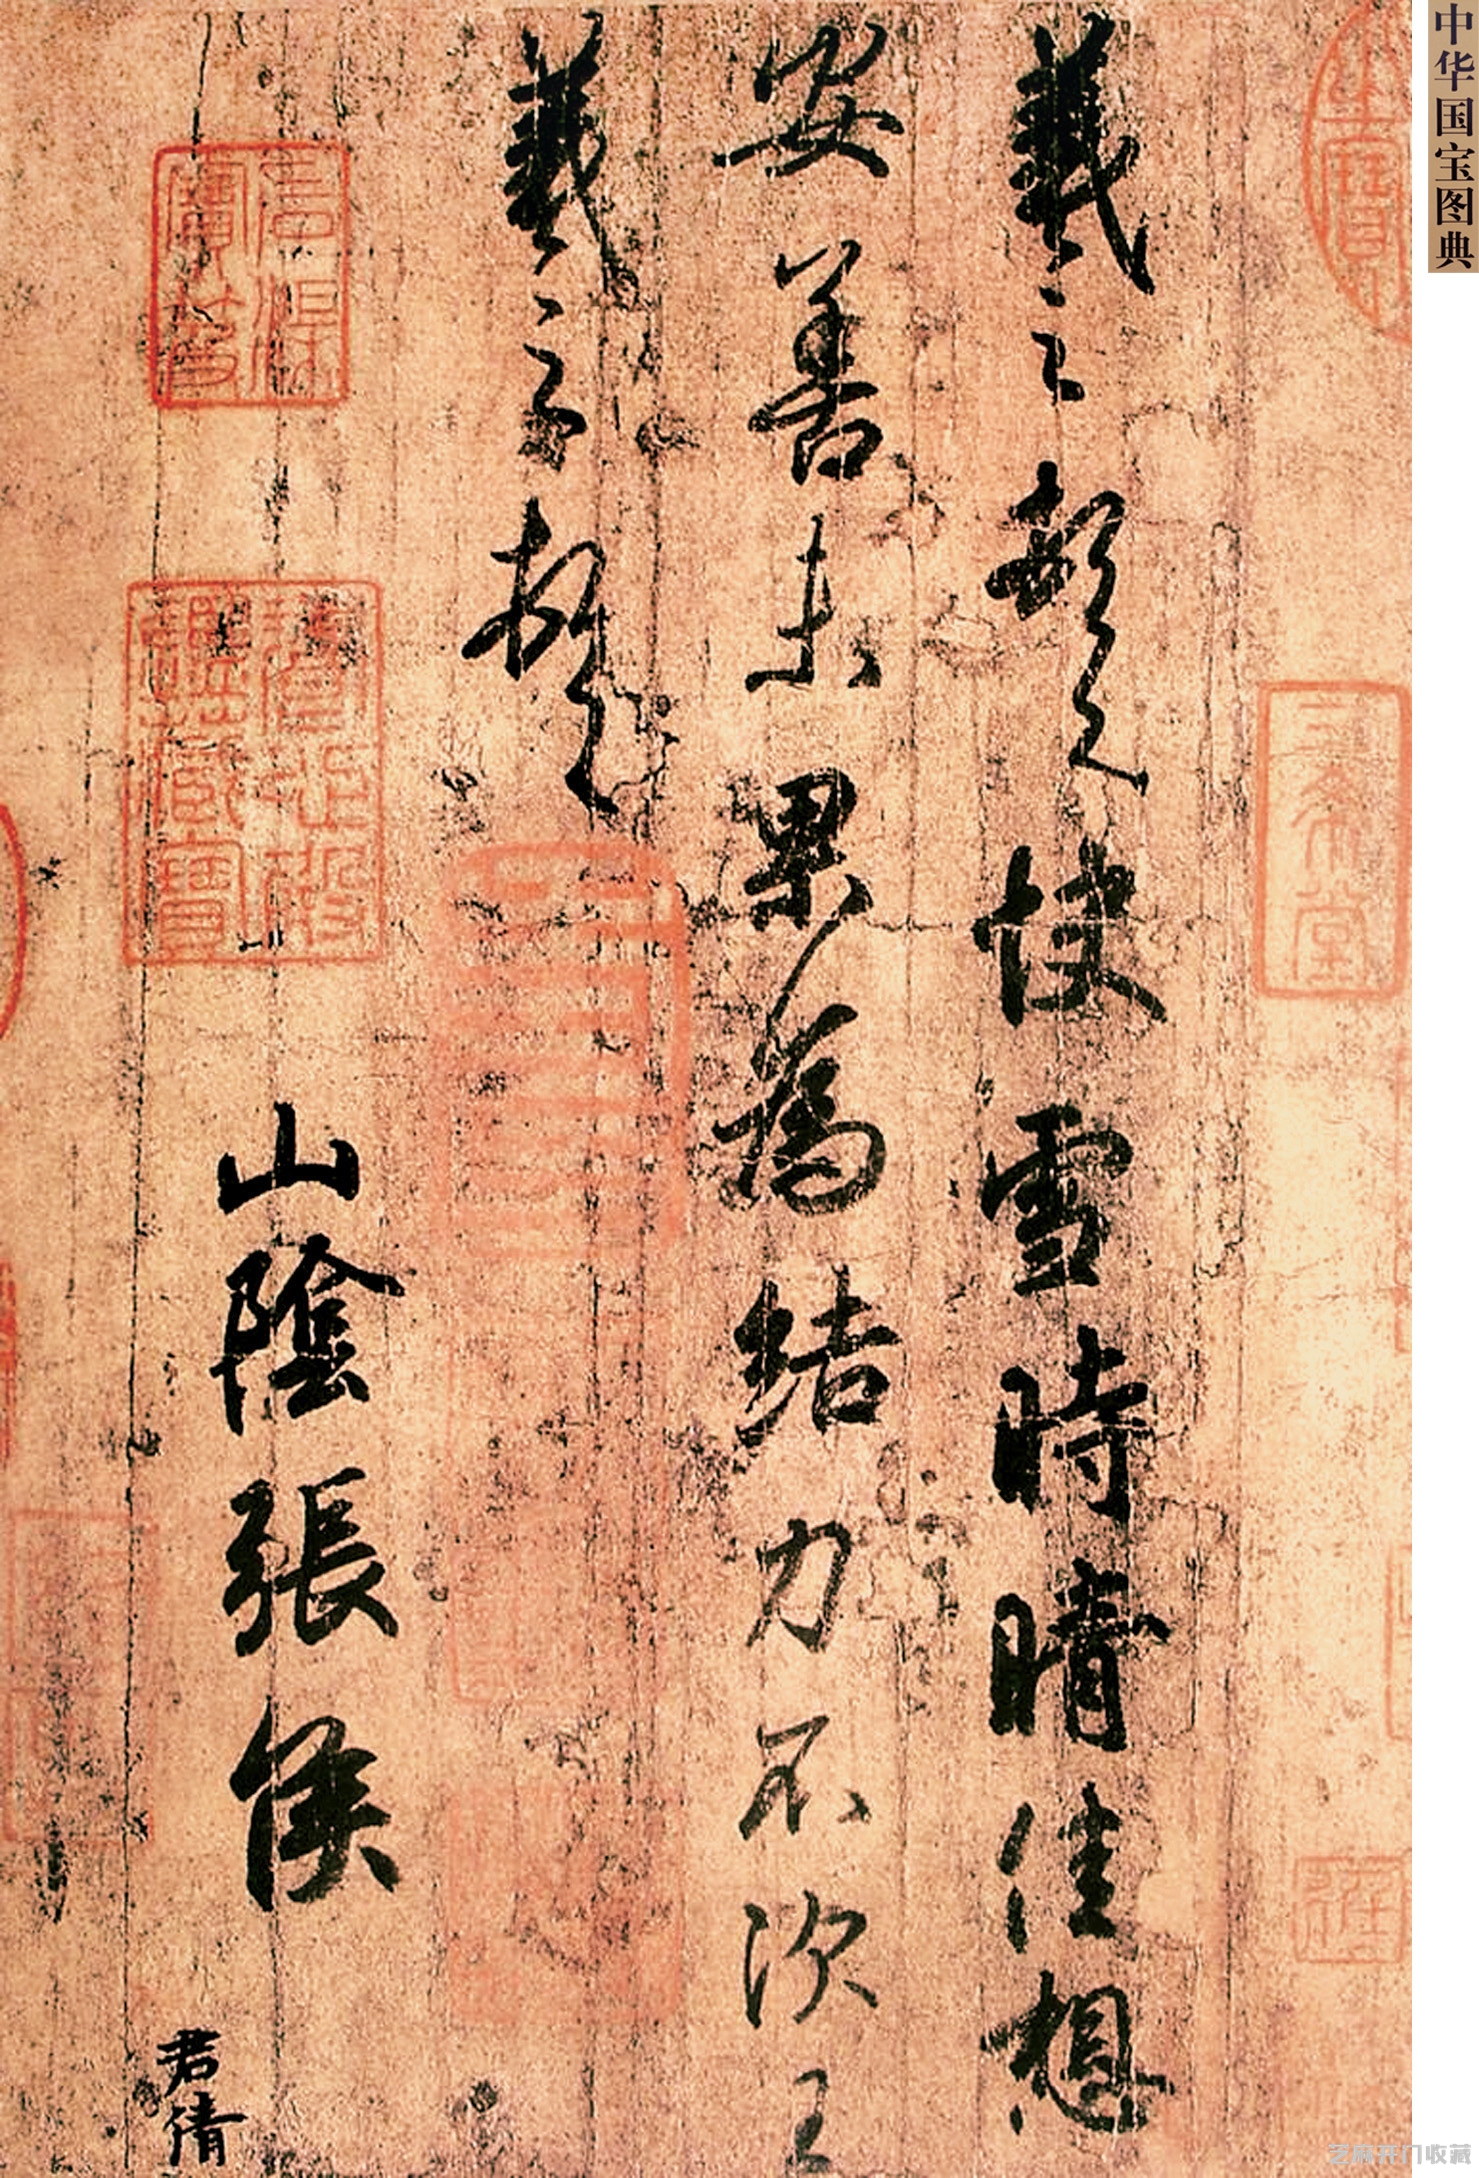 中华国宝图典
羲之頓首快雪時晴佳想
安善未果為結力不次王
羲之頓首
山陰張侯
君倩
三希堂
芝麻开门收藏